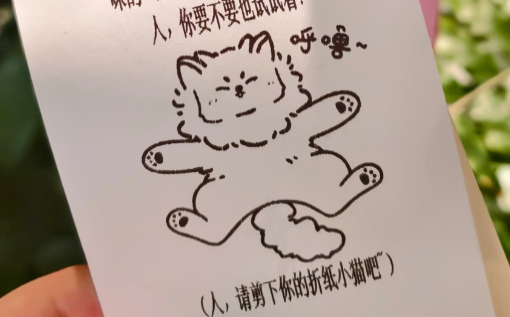 人，你要不要也试试看？
呼噜~
（人，请剪下你的折纸小猫吧~）